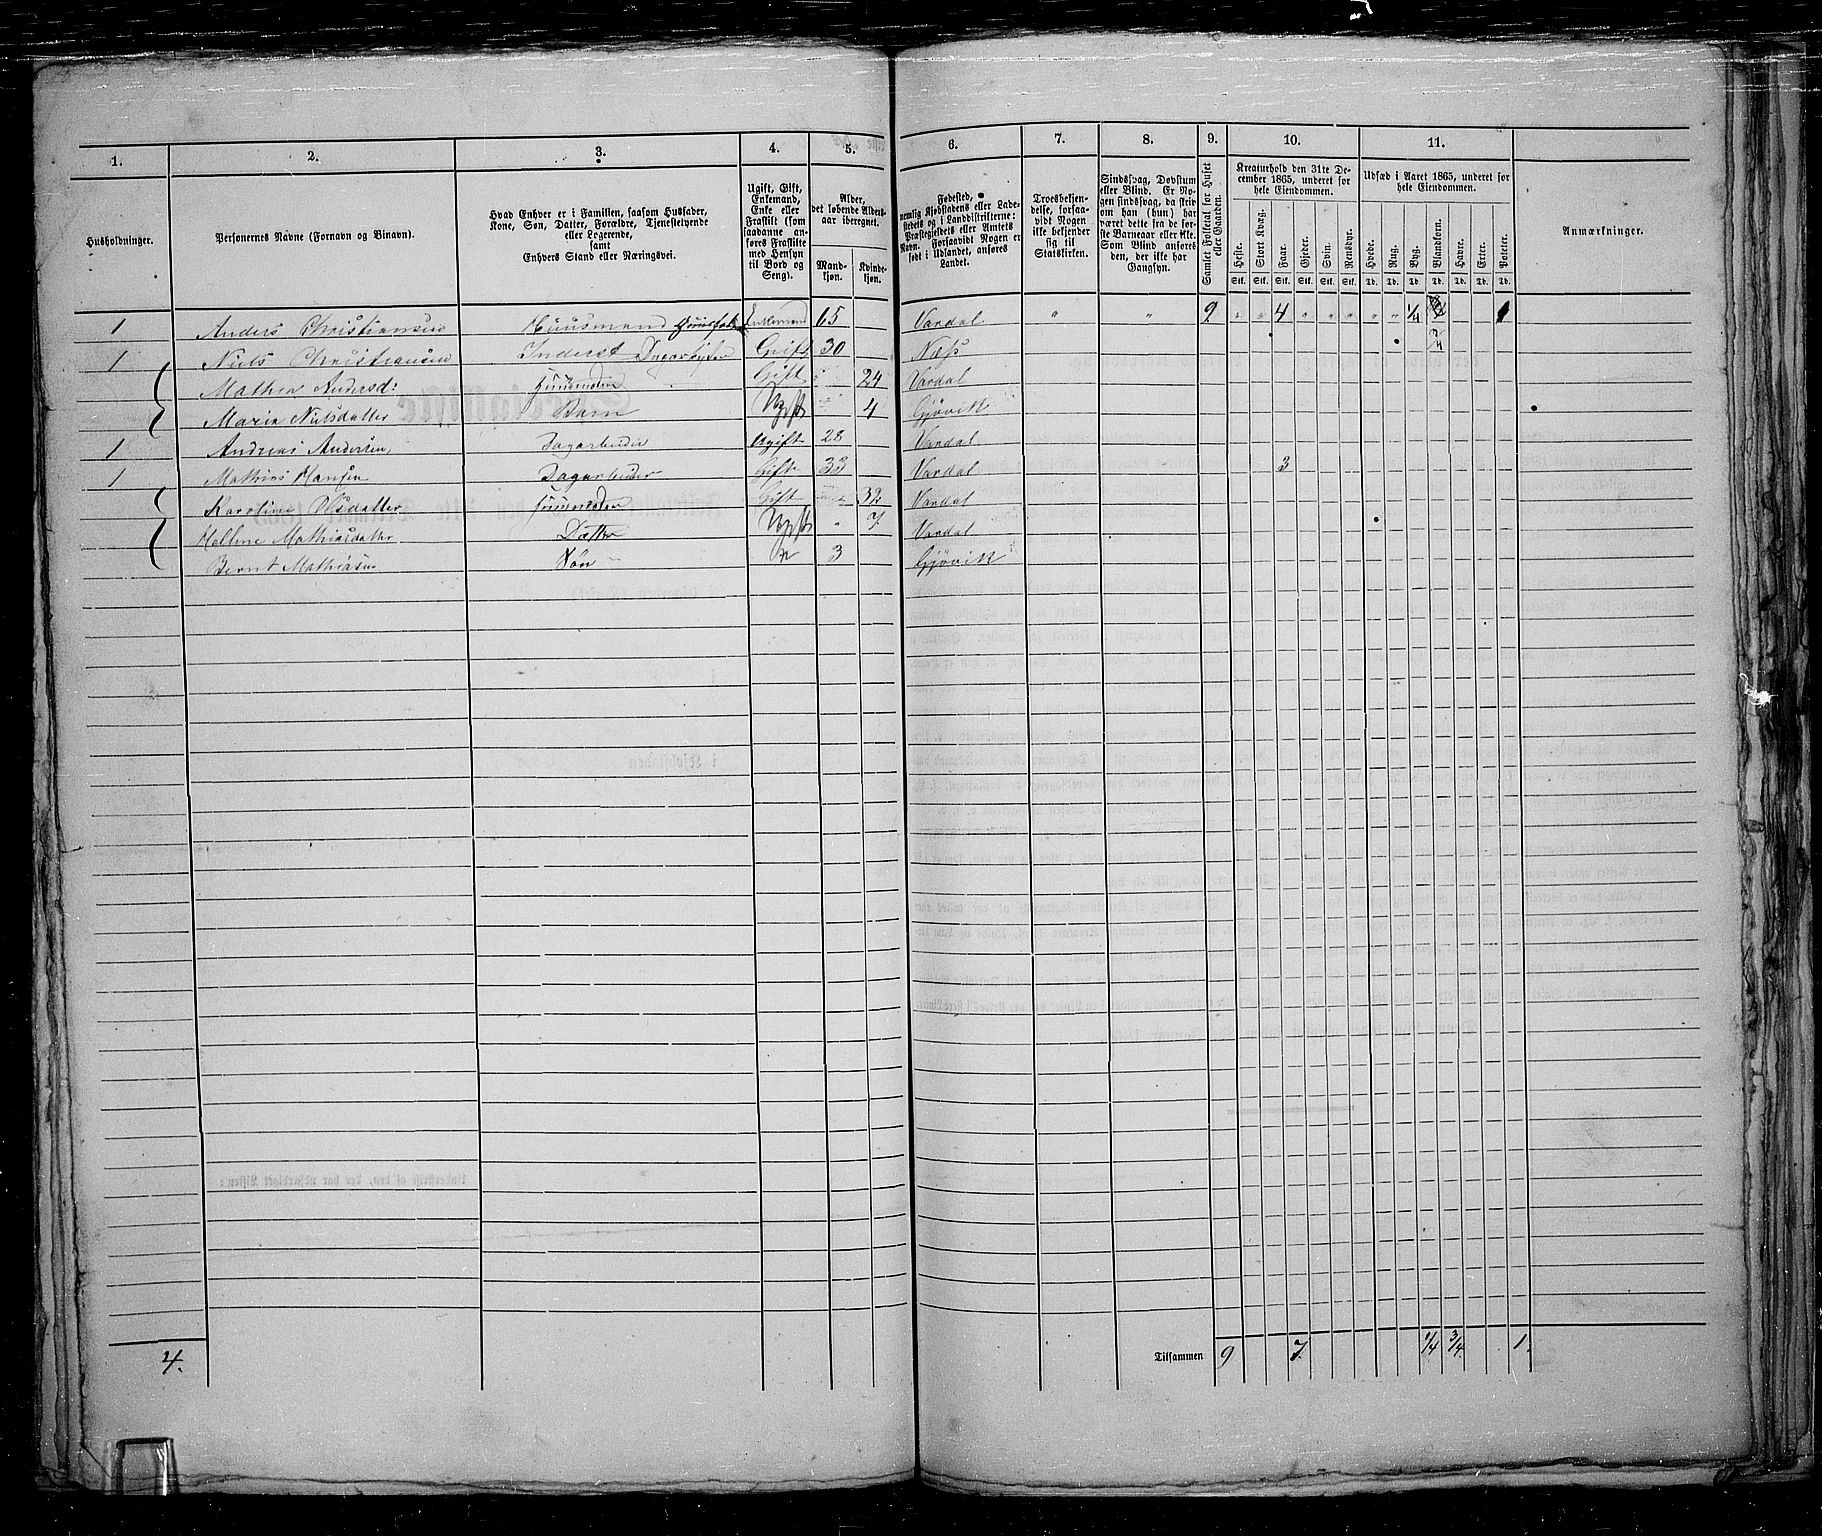 1. 2. 3. 4. 5. 6. 7. 8. 9. 10. 11.
Husholdninger.
Personernes Navne (Fornavn og Binavn).
Hvad Enhver er i Familien, saasom Husfader,
Kone, Søn, Datter, Forældre, Tjenestetyende
eller Logerende,
samt
Enhvers Stand eller Næringsvei.
Ugift, Gift,
Enkemand,
Enke eller
Fraskilt (som
saadanne an-
føres Fraskilte
med Hensyn
til Bord og
Seng).
Alder,
det løbende Alders-
aar iberegnet.
Mand-
kjøn.
Kvinde-
kjøn.
Fødested,
nemlig Kjøbstadens eller Lade-
stedets og i Landdistrikterne:
Præstegjeldets eller Amtets
Navn. Forsaavidt Nogen er
født i Udlandet, anføres
Landet.
Troesbekjen-
delse, forsaa-
vidt Nogen
ikke bekjender
sig til
Statskirken.
Sindssvag, Døvstum
eller Blind. Er No-
gen sindssvag, da skriv
om han (hun) har
været dette fra de før-
ste Barneaar eller ikke.
Som Blind anføres
den, der ikke har
Gangsyn.
Samlet Folketal for Huset
eller Gaarden.
Kreaturhold den 31te De-
cember 1865, underet for
hele Eiendommen.
Heste. Stort Kvæg. Faar. Gjeder. Svin. Rensdyr.
Stk. Stk. Stk. Stk. Stk. Stk.
Udsæd i Aaret 1865, underet for
hele Eiendommen.
Hvede. Rug. Byg. Blandkorn. Havre. Erter. Poteter.
Td. Td. Td. Td. Td. Td. Td.
Anmærkninger.
1 Anders Christiansen Huusmand Huusfader Enkemand 65 Vardal " " 9 " " 4 " " " " " 1/4 1
1 Niels Christiansen Inderst Dagarbeider Gift 30 Næss
Mathea Andersd: Huusmoder Gift 24 Vardal
Maria Nilsdatter Barn Ugift 4 Gjøvik
1 Andreas Andersen Dagarbeider Ugift 28 Vardal
1 Mathias Hansen Dagarbeider Gift 33 Vardal 3
Karoline Olsdatter Huusmoder Gift 32 Vardal
Helline Mathiasdatter Datter Ugift " 7 Vardal
Bernt Mathiasen Søn " 3 Gjøvik
4. Tilsammen 9 7 1/4 3/4 1.